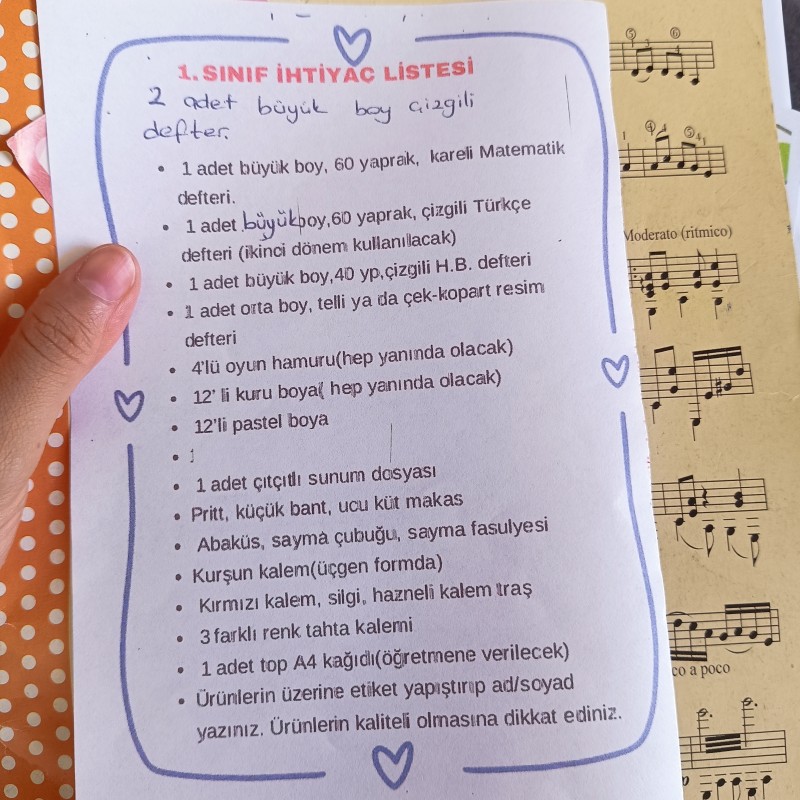 1. SINIF İHTİYAÇ LİSTESİ
2 adet büyük boy çizgili
defter.
• 1 adet büyük boy, 60 yaprak, kareli Matematik
defteri.
• 1 adet büyük boy,60 yaprak, çizgili Türkçe
defteri (ikinci dönem kullanılacak)
• 1 adet büyük boy,40 yp,çizgili H.B. defteri
• 1 adet orta boy, telli ya da çek-kopart resim
defteri
• 4'lü oyun hamuru(hep yanında olacak)
• 12' li kuru boya( hep yanında olacak)
• 12'li pastel boya
•
• 1 adet çıtçıtlı sunum dosyası
• Pritt, küçük bant, ucu küt makas
• Abaküs, sayma çubuğu, sayma fasulyesi
• Kurşun kalem(üçgen formda)
• Kırmızı kalem, silgi, hazneli kalem traş
• 3 farklı renk tahta kalemi
• 1 adet top A4 kağıdı(öğretmene verilecek)
• Ürünlerin üzerine etiket yapıştırıp ad/soyad
yazınız. Ürünlerin kaliteli olmasına dikkat ediniz.
Moderato (ritmico)
co a poco